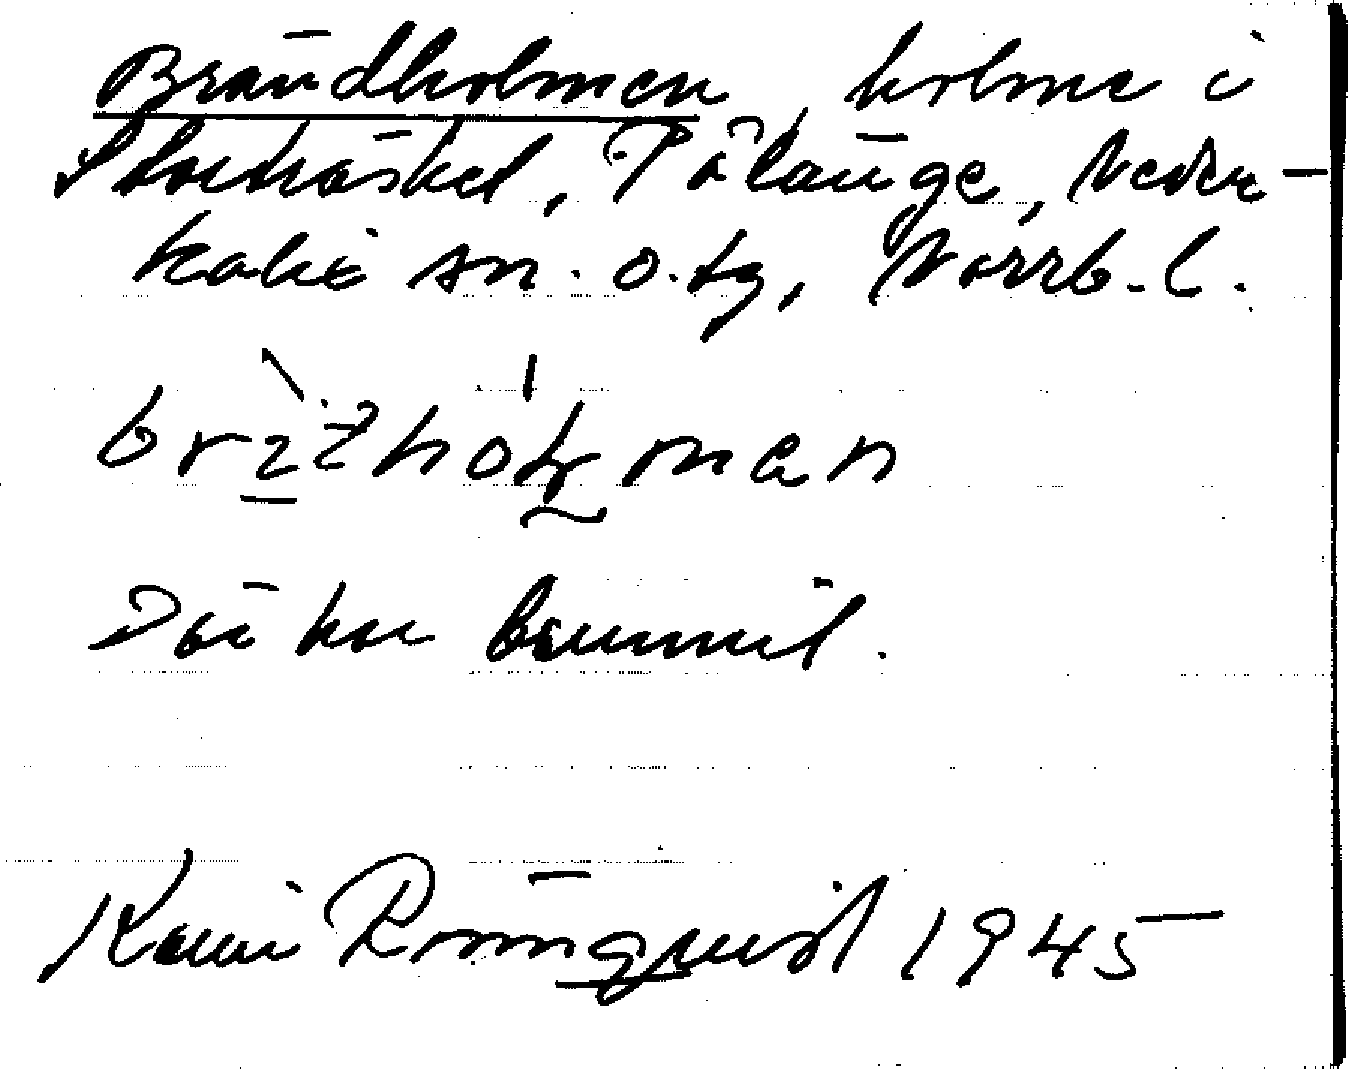 Brändholmen, holme i
Storträsket, Pålänge, Neder-
kalix sn. o. tg, Norrb. l.
Där har brunnit.
Rönnquist 1945